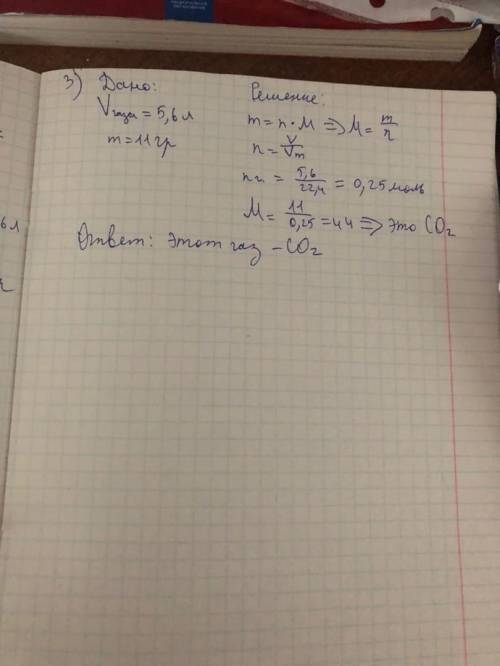 3) Дано:
Vгаза = 5,6 л
m = 11 гр
Решение:
m = n · M ⇒ M = m/n
n = V/Vm
n = 5,6/22,4 = 0,25 моль
M = 11/0,25 = 44 ⇒ это CO₂
Ответ: Этот газ – CO₂
6 л